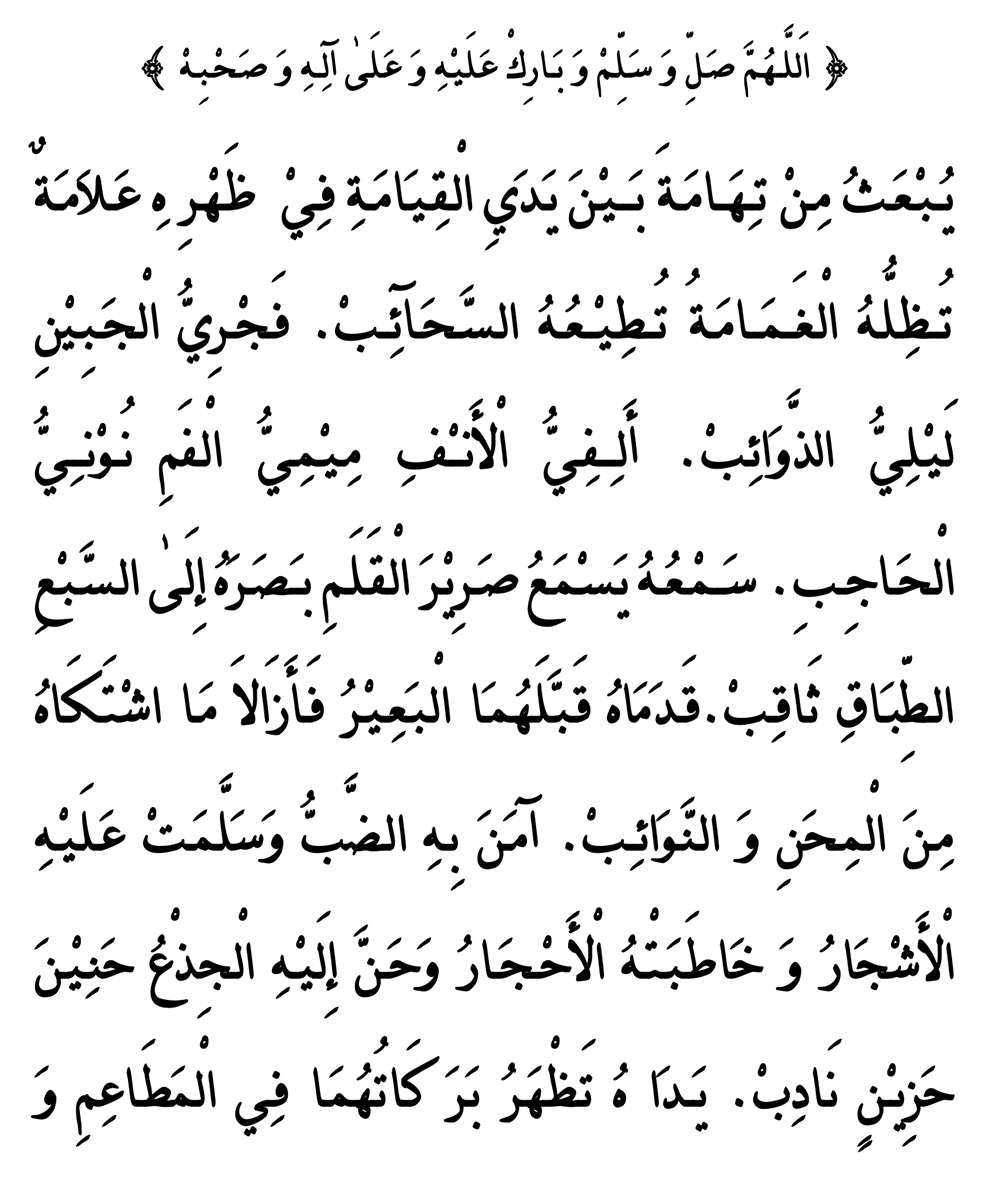 ﴿ اَللَّهُمَّ صَلِّ وَ سَلِّمْ وَ بَارِكْ عَلَيْهِ وَ عَلَىٰ آلِهِ وَ صَحْبِهْ ﴾
يُبْعَثُ مِنْ تِهَامَةَ بَيْنَ يَدَيِ الْقِيَامَةِ فِيْ ظَهْرِ هِ عَلاَمَةٌ
تُظِلُّهُ الْغَمَامَةُ تُطِيْعُهُ السَّحَآئِبْ. فَجْرِيُّ الْجَبِيْنِ
لَيْلِيُّ الذَّوَائِبْ. أَلِفِيُّ الْأَنْفِ مِيْمِيُّ الْفَمِ نُوْنِيُّ
الْحَاجِبِ. سَمْعُهُ يَسْمَعُ صَرِيْرَ الْقَلَمِ بَصَرَهُ إِلَىٰ السَّبْعِ
الطِّبَاقِ ثَاقِبْ.قَدَمَاهُ قَبَّلَهُمَا الْبَعِيْرُ فَأَزَالاَ مَا اشْتَكَاهُ
مِنَ الْمِحَنِ وَ النَّوَائِبْ. آمَنَ بِهِ الضَّبُّ وَسَلَّمَتْ عَلَيْهِ
الْأَشْجَارُ وَ خَاطَبَتْهُ الْأَحْجَارُ وَحَنَّ إِلَيْهِ الْجِذْعُ حَنِيْنَ
حَزِيْنٍ نَادِبْ. يَدَا هُ تَظْهَرُ بَرَ كَاتُهُمَا فِي الْمَطَاعِمِ وَ